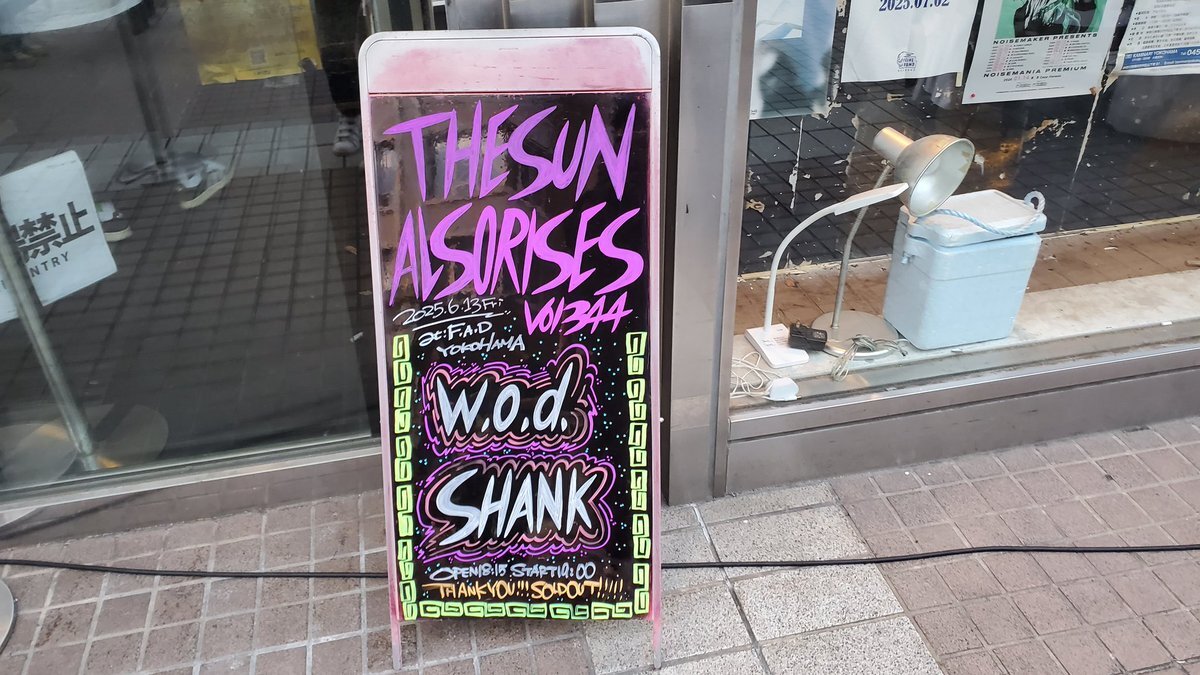 THE SUN
ALSO RISES
VOl 344
2025.6.13 Fri
at: F.A.D
YOKOHAMA
W.O.d.
SHANK
OPEN 18:15 START 19:00
THANK YOU!!! SOLD OUT!!!!!
禁止
NTRY
2025.01.02
NOISEMAKER PRESENTS
NOISEMANIA PREMIUM
YOKOHAMA